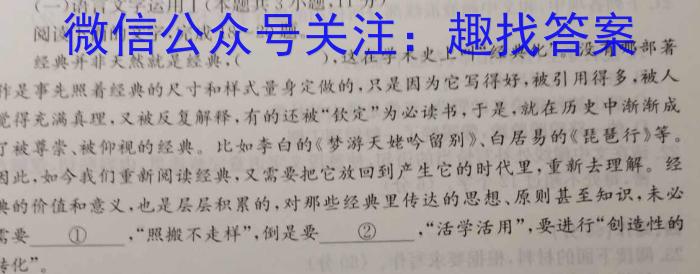 (一)语言文字运用I(本题共3小题,11分)
阅读
微信公众号关注：趣找答案
经典并非天然就是经典,( ),这在学术史上叫“经典化”。没有哪部著
作是事先照着经典的尺寸和样式量身定做的,只是因为它写得好,被引用得多,被人
觉得充满真理,又被反复解释,有的还被“钦定”为必读书,于是,就在历史中渐渐成
了被尊崇、被仰视的经典。比如李白的《梦游天姥吟留别》、白居易的《琵琶行》等。
因此,如今我们重新阅读经典,又需要把它放回到产生它的时代里,重新去理解。经
典的价值和意义,也是层层积累的,对那些经典里传达的思想、原则甚至知识,未必
需要 ① ,“照搬不走样”,倒是要 ② ,“活学活用”,要进行“创造性的
转化”。
23.阅读下面的材料,根据要求写作。(60分)